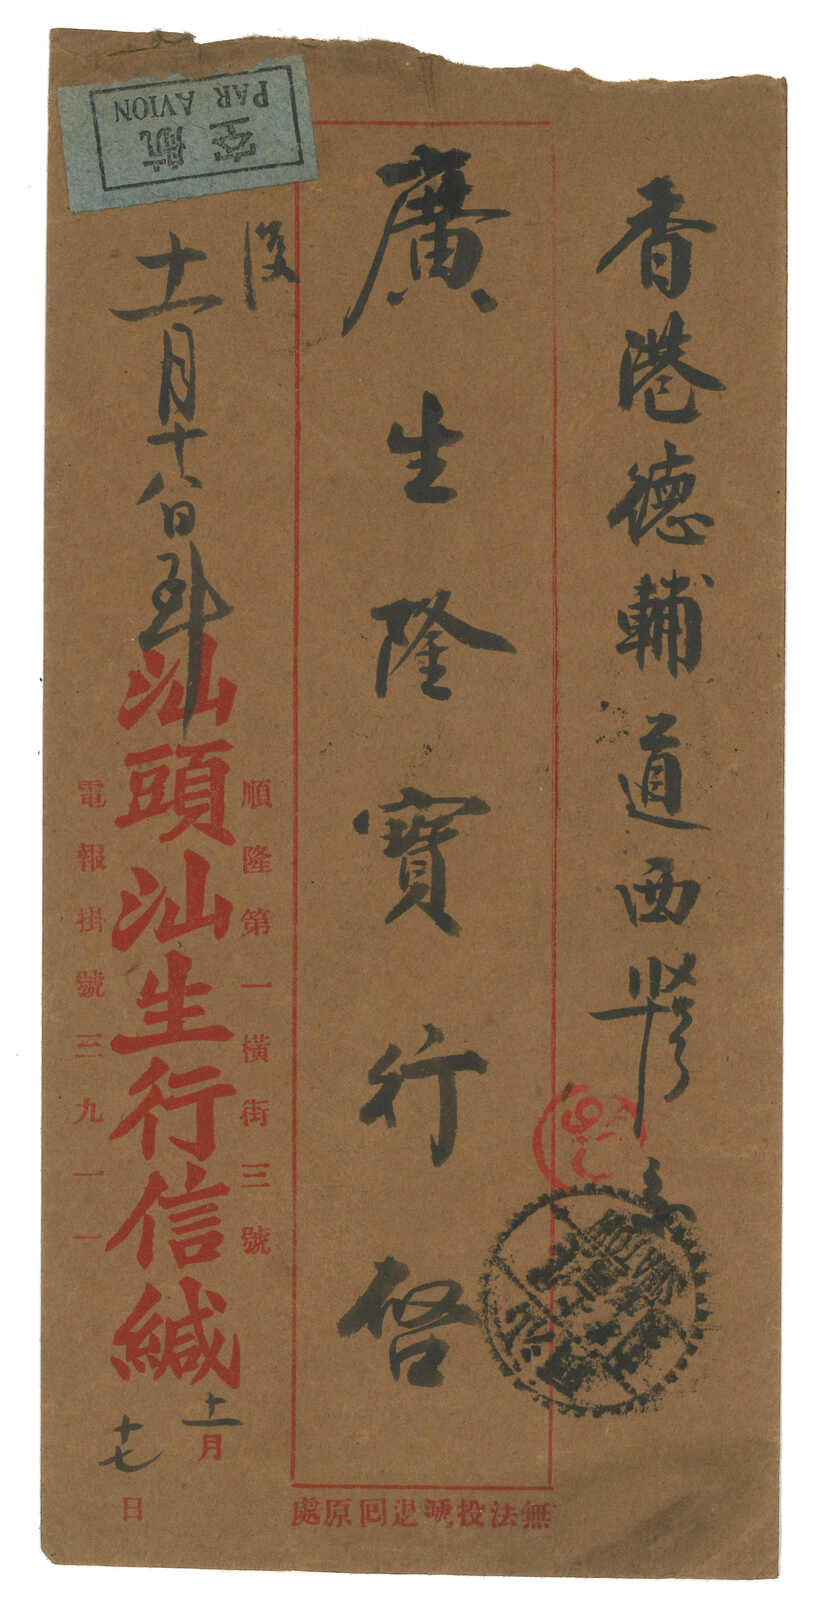 香港德輔道西
廣生隆寶行啓
無法投遞退回原處
順隆第一橫街三號
汕頭汕生行信緘
十一月十七日
電報掛號三九一一
十一月十八日
航空
PAR AVION